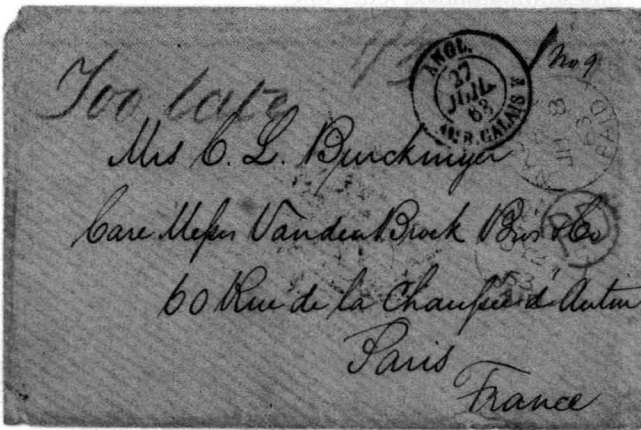 Too late
No 9
ANGL.
27
JUIL
63
AMB. CALAIS
PAID
Mrs C. L. Burckmyer
Care Messrs VandenBrock Bros & Co
60 Rue de la Chaussée d'Antin
Paris
France